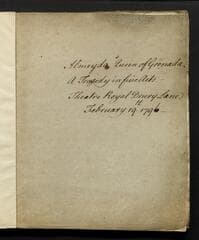 Almeyda Queen of Grenada
A Tragedy in five Acts
Theatre Royal Drury Lane
February 19th 1796